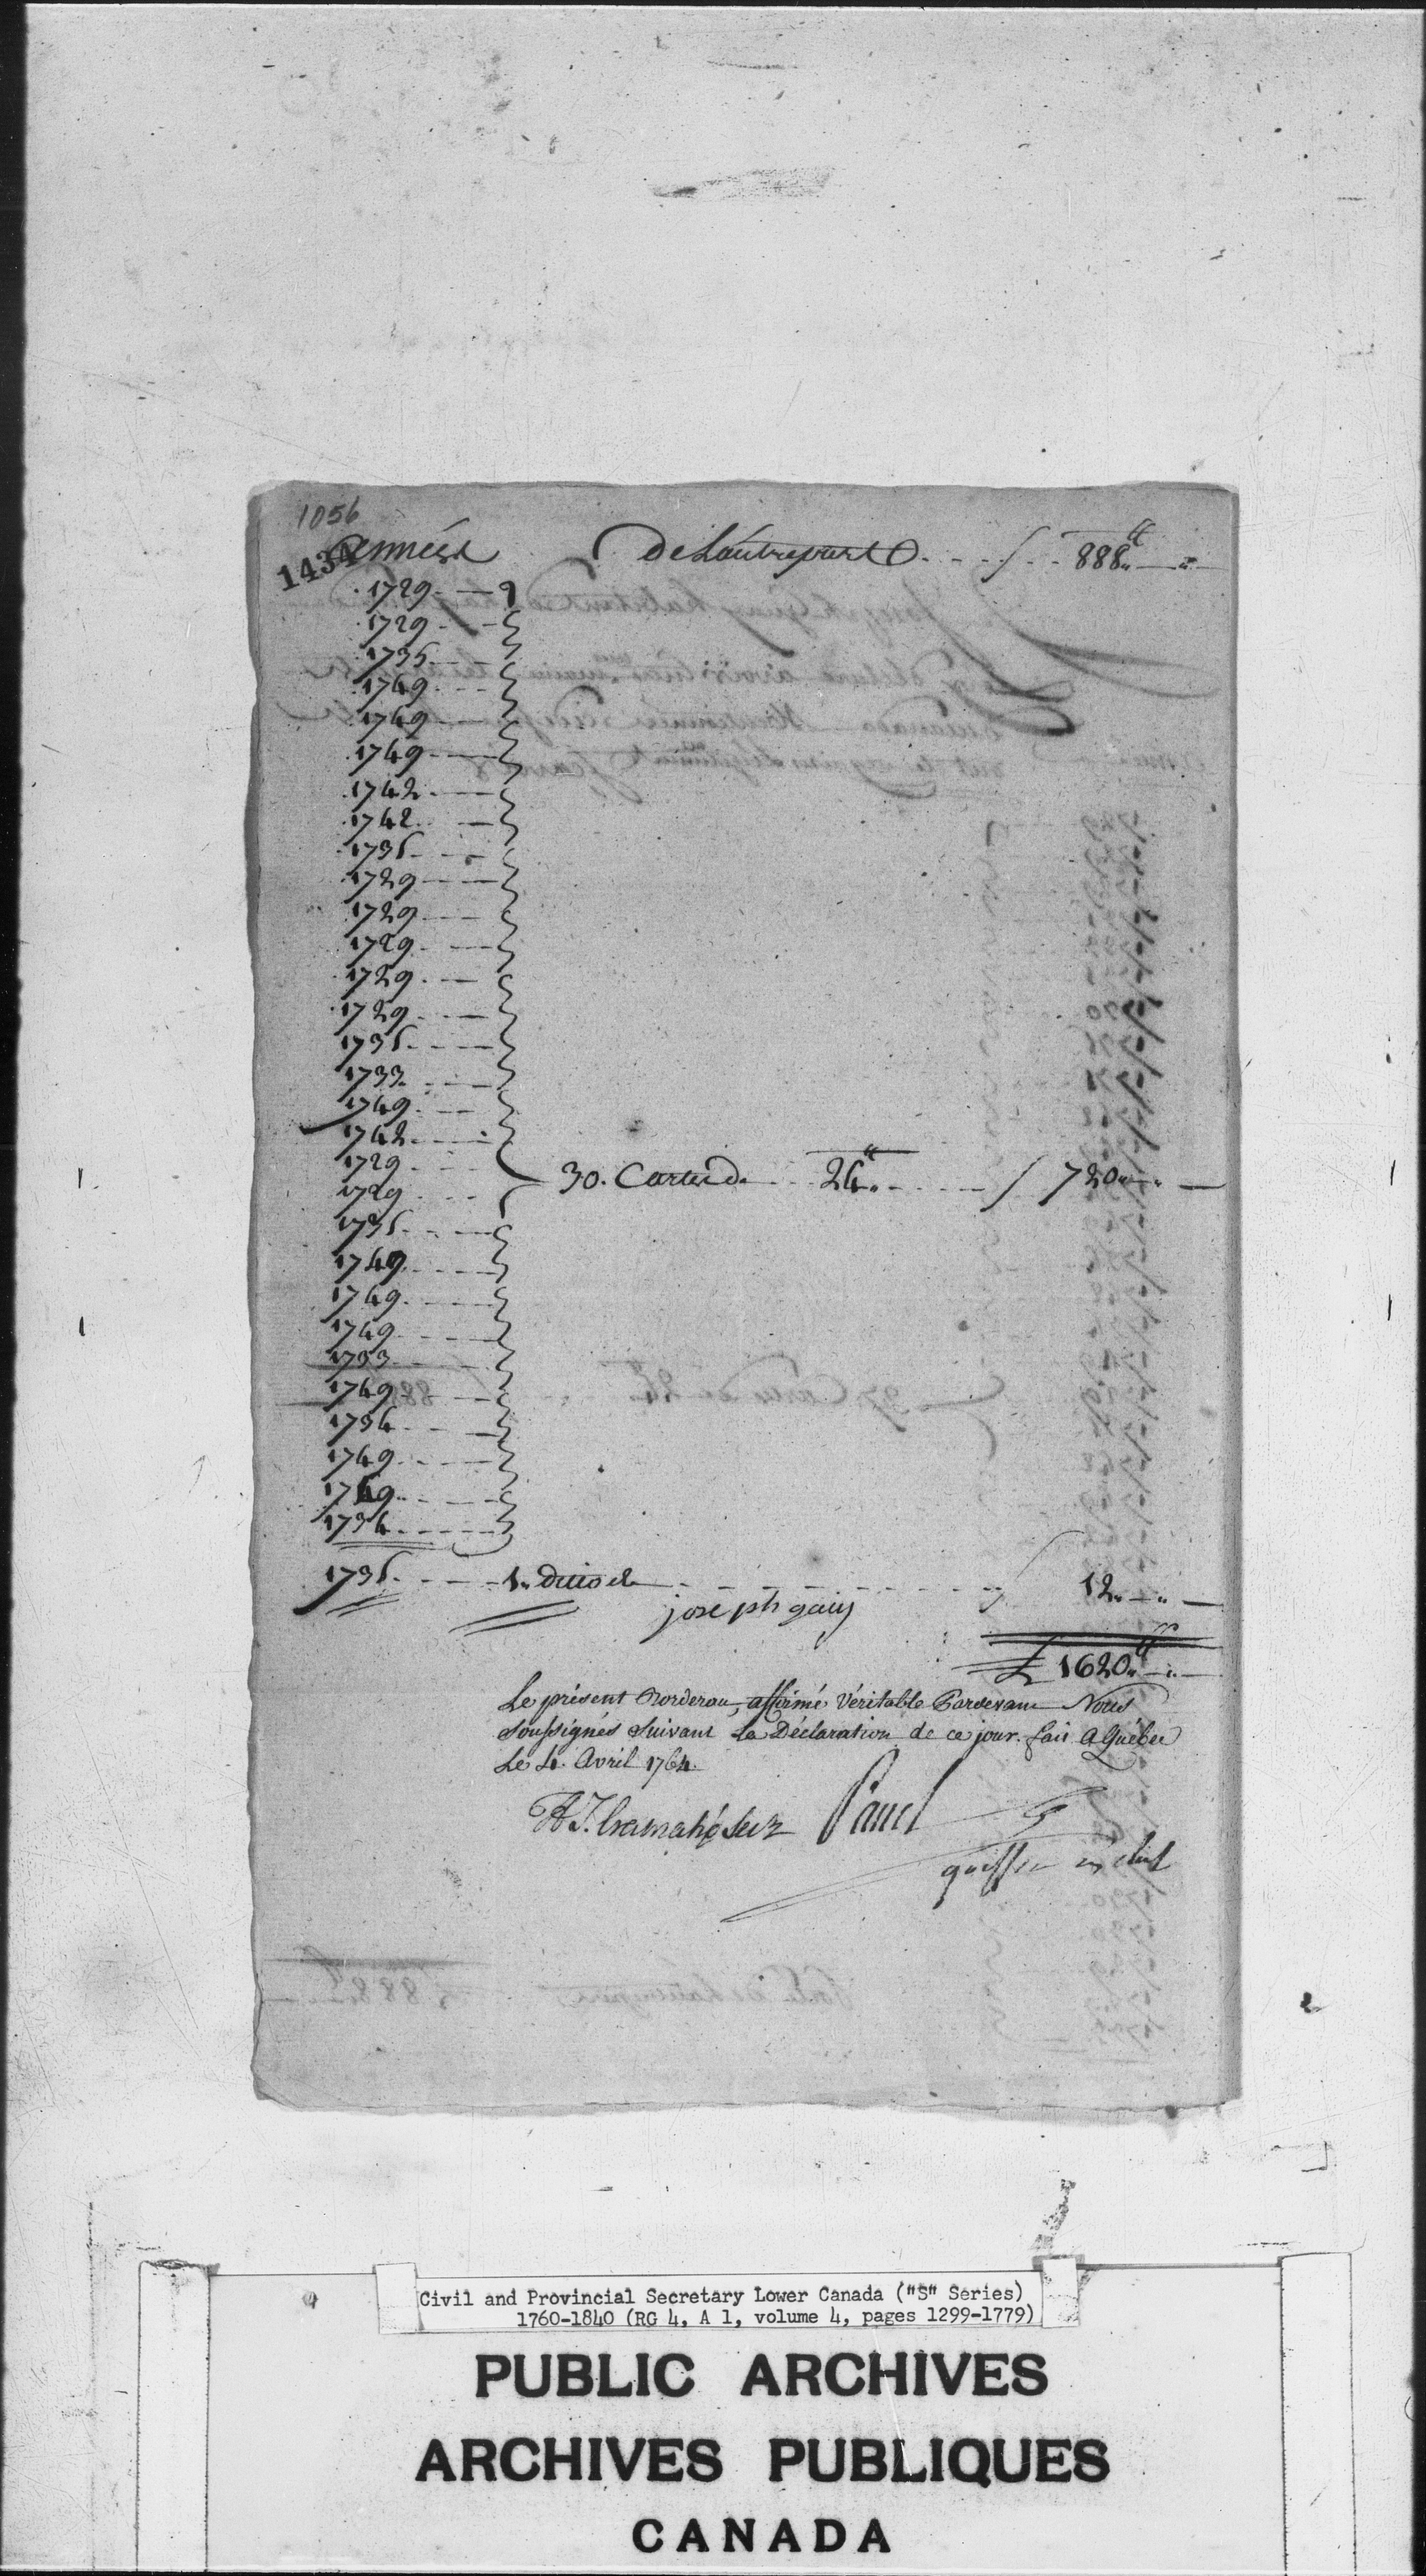 1056
1434
années De L'autrepart . . . . . / . . 888.tt —"—
1729
1729
1735
1749
1749
1749
1742
1742
1735
1729
1729
1729
1729
1729
1735
1733
1749
1742
1729
1729 30. Cartes de 24.tt / 720.."—
1735
1749
1749
1749
1733
1749
1734
1749
1749
1734
1735 1. de 12.."—
joseph gaiy
£ 1620.tt"—
Le présent Bordereau, affirmé Véritable Pardevant Nous
Soussignés suivant La Déclaration de ce jour. fait a Québec
Le 4. Avril 1764.
H T. Cramahé Panet
Civil and Provincial Secretary Lower Canada ("S" Series)
1760-1840 (RG 4, A 1, volume 4, pages 1299-1779)
PUBLIC ARCHIVES
ARCHIVES PUBLIQUES
CANADA